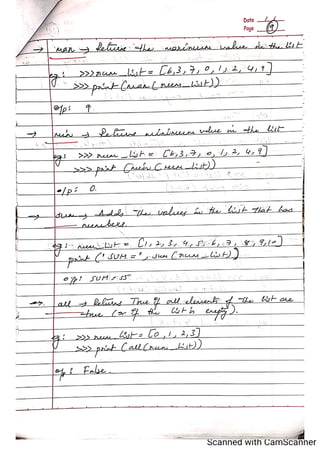 Date 1/1
Page 9
→ max → Returns the maximum value in the list
eg: >>> num_list = [6,3,7,0,1,2,4,9]
>>> print (max (num_list))
o/p: 9
→ min → Returns minimum value in the list
eg: >>> num_list = [6,3,7,0,1,2,4,9]
>>> print (min (num_list))
o/p: 0.
→ sum → Adds the values in the list that has
numbers.
eg: num_list = [1,2,3,4,5,6,7,8,9,10]
print ('SUM =', sum (num_list))
o/p: SUM = 55
→ all → Returns True if all elements of the list are
true (or if the list is empty).
eg: >>> num_list = [0,1,2,3]
>>> print (all (num_list))
o/p: False.
Scanned with CamScanner